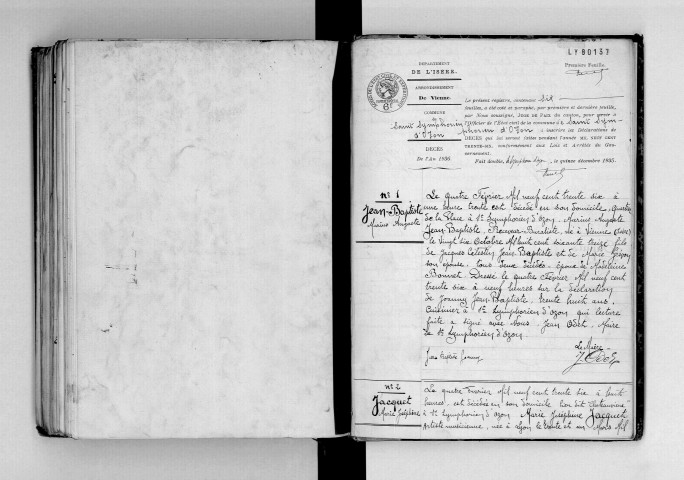 LY80137
Première Feuille.
DÉPARTEMENT
DE L'ISÈRE.
ARRONDISSEMENT
De Vienne.
COMMUNE
de
Saint Symphorien
d'Ozon
DÉCÈS
De l'An 1936.
Le présent registre, contenant Six
feuilles, a été coté et paraphé, par première et dernière feuille,
par Nous soussigné, JUGE DE PAIX du canton, pour servir à
l'Officier de l'État civil de la commune d Saint Sym-
phorien d'Ozon à inscrire les Déclarations de
DÉCÈS qui lui seront faites pendant l'année MIL NEUF CENT
TRENTE-SIX, conformément aux Lois et Arrêtés du Gou-
vernement.
Fait double, à Symphorien d'Ozon, le quinze décembre 1935.
N° 1
Jean-Baptiste
Marius Auguste
Le quatre Février Mil neuf cent trente six à
une heure trente est décédé en son domicile, quartier
de la Place à St Symphorien d'ozon, Marius Auguste
Jean-Baptiste, Receveur-Buraliste, né à Vienne (Isère)
le vingt six Octobre Mil huit cent soixante treize fils
de Jacques Célestin Jean-Baptiste et de Marie
son épouse, tous deux décédés, époux de Madeleine
Bonnet. Dressé le quatre Février Mil neuf cent
trente six à neuf heures sur la déclaration
de Joanny Jean-Baptiste, trente huit ans,
Cuisinier à St Symphorien d'ozon qui lecture
faite a signé avec Nous, Jean Odet, Maire
de St Symphorien d'ozon.
Le Maire
Jean Baptiste Joanny
J. Odet
N° 2
Jacquet
Marie Joséphine
Le quatre Février Mil neuf cent trente six, à huit
heures, est décédée en son domicile lieu dit
à St Symphorien d'ozon Marie Joséphine Jacquet
Artiste musicienne, née à Lyon le trente et un Mars Mil